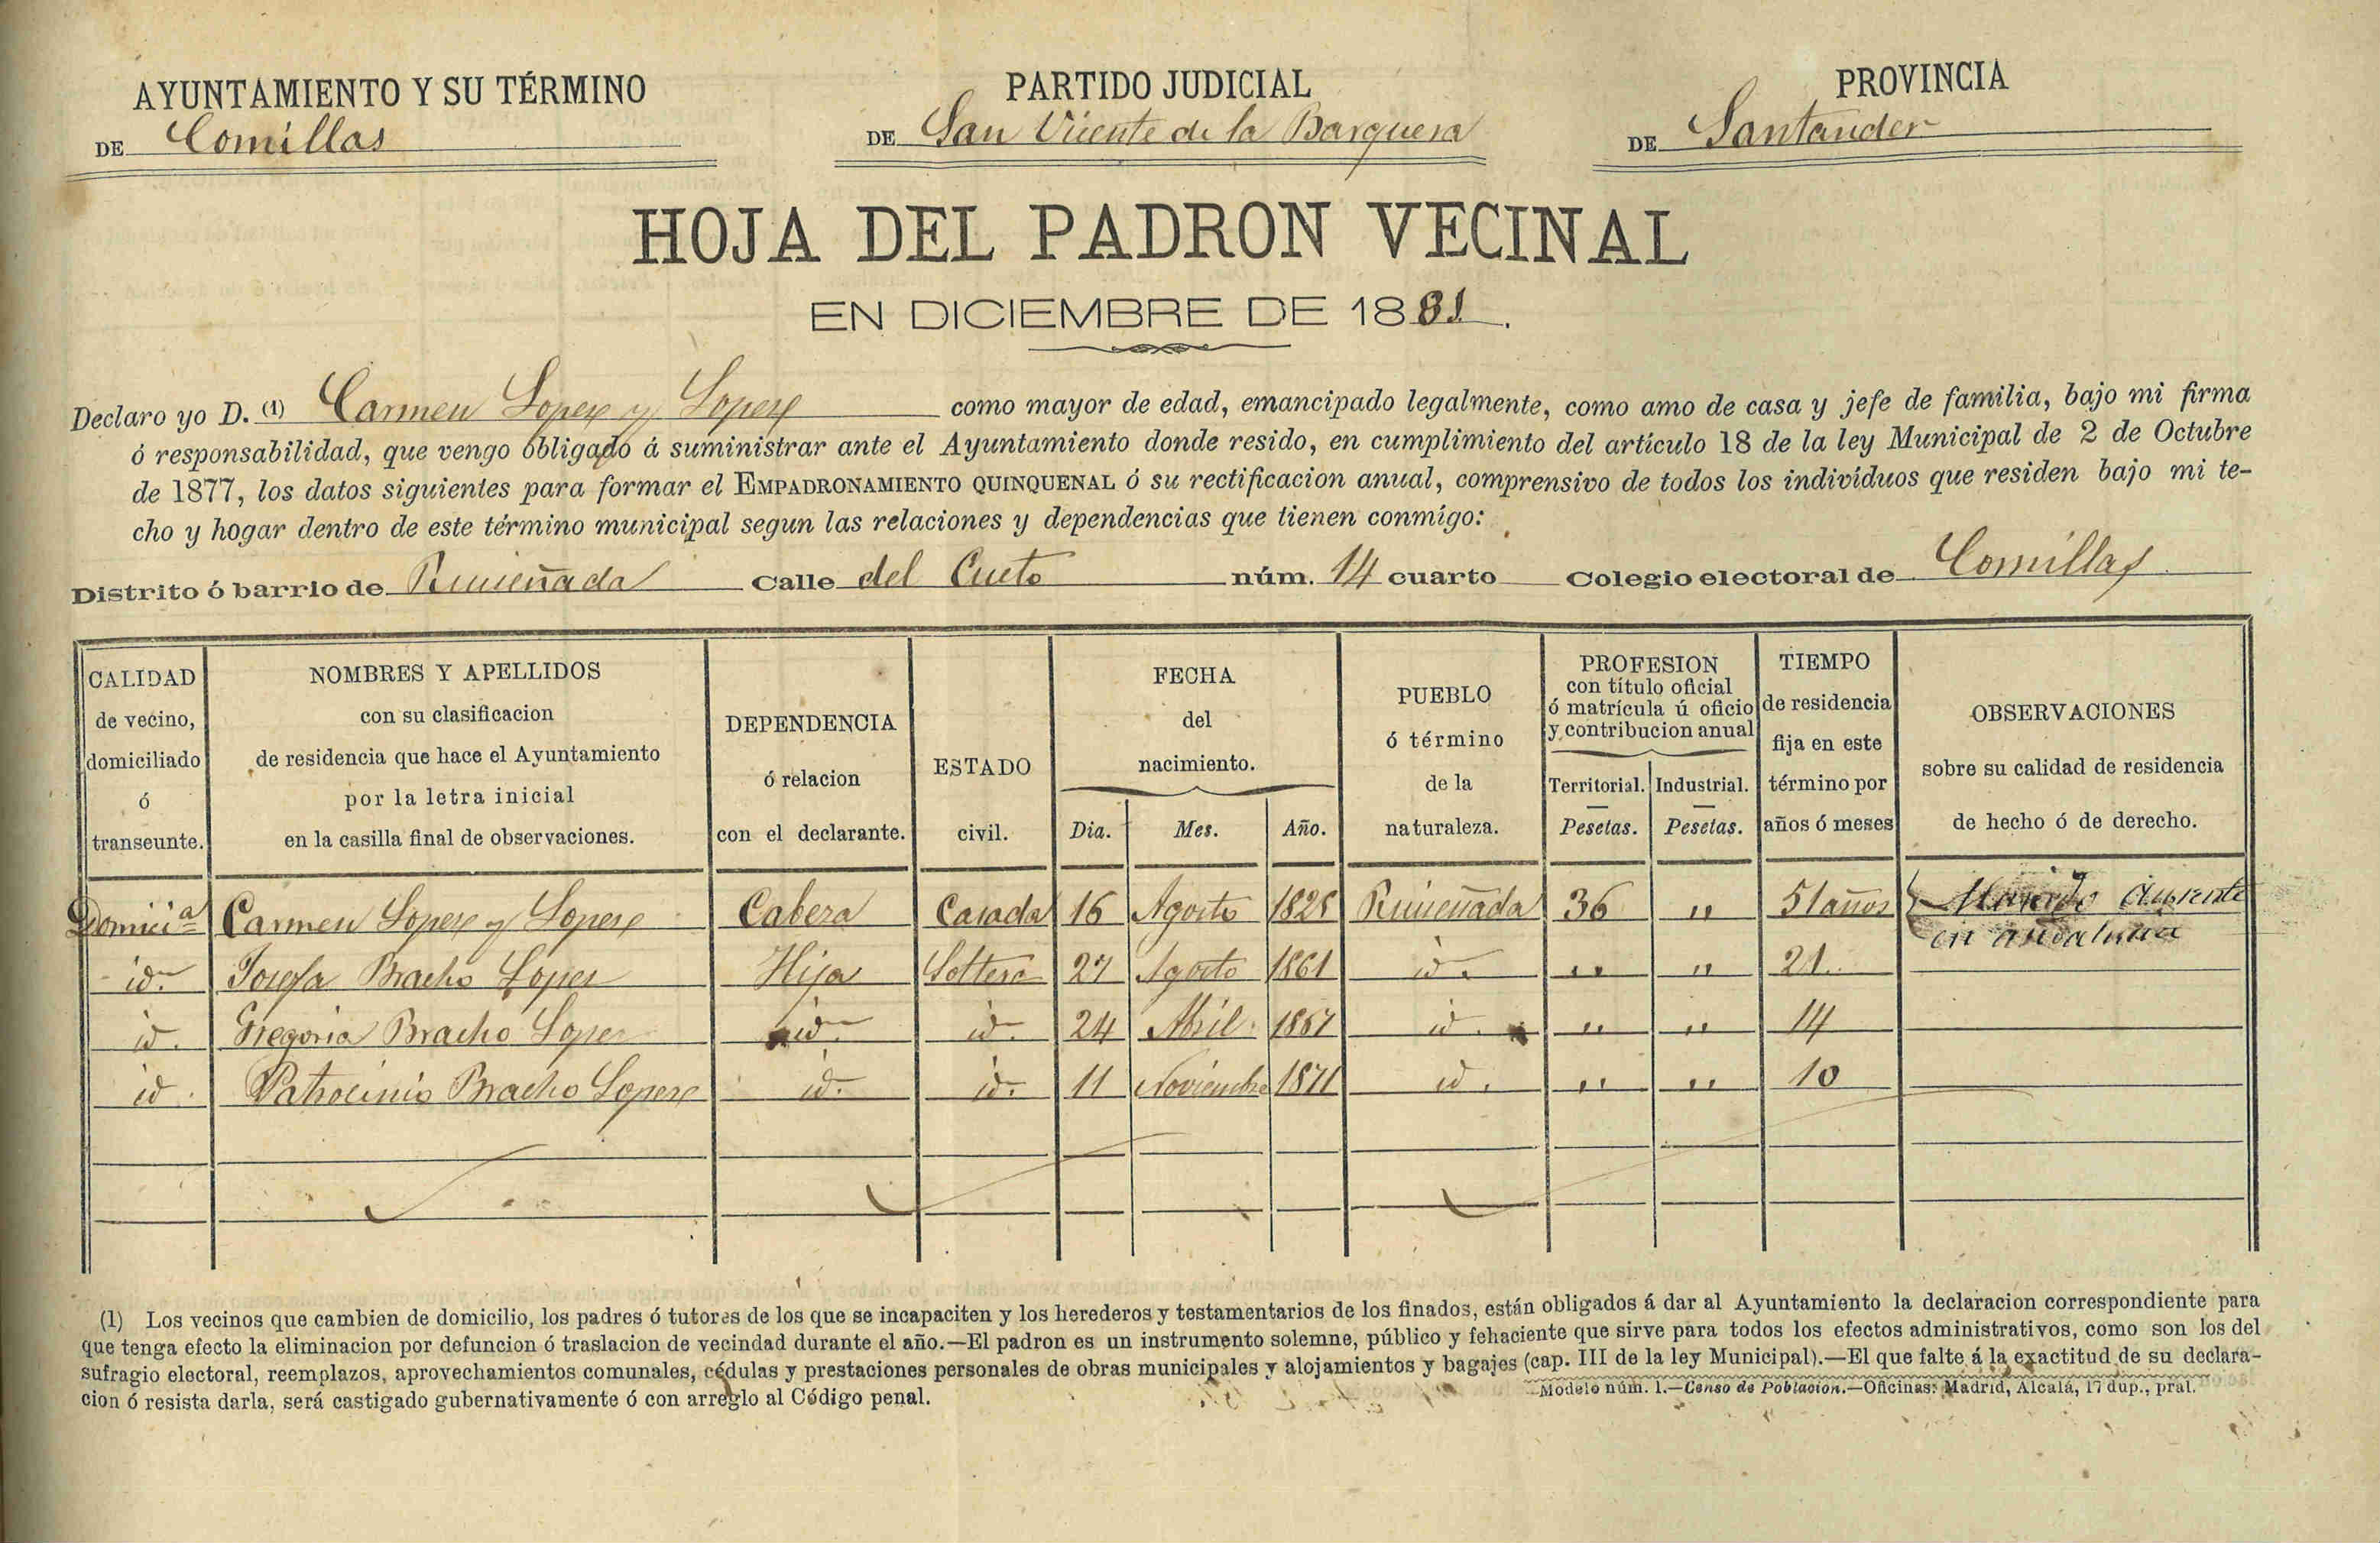 AYUNTAMIENTO Y SU TÉRMINO
DE Comillas
PARTIDO JUDICIAL
DE San Vicente de la Barquera
PROVINCIA
DE Santander
HOJA DEL PADRON VECINAL
EN DICIEMBRE DE 1881.
Declaro yo D. (1) Carmen Lopez y Lopez como mayor de edad, emancipado legalmente, como amo de casa y jefe de familia, bajo mi firma
ó responsabilidad, que vengo obligado á suministrar ante el Ayuntamiento donde resido, en cumplimiento del artículo 18 de la ley Municipal de 2 de Octubre
de 1877, los datos siguientes para formar el EMPADRONAMIENTO QUINQUENAL ó su rectificacion anual, comprensivo de todos los indivíduos que residen bajo mi te-
cho y hogar dentro de este término municipal segun las relaciones y dependencias que tienen conmígo:
Distrito ó barrio de Ruiseñada Calle del Cueto núm. 14 cuarto Colegio electoral de Comillas
CALIDAD
de vecino,
domiciliado
ó
transeunte.
NOMBRES Y APELLIDOS
con su clasificacion
de residencia que hace el Ayuntamiento
por la letra inicial
en la casilla final de observaciones.
DEPENDENCIA
ó relacion
con el declarante.
ESTADO
civil.
FECHA
del
nacimiento.
Dia. Mes. Año.
PUEBLO
ó término
de la
naturaleza.
PROFESION
con título oficial
ó matrícula ú oficio
y contribucion anual
Territorial. Industrial.
Pesetas. Pesetas.
TIEMPO
de residencia
fija en este
término por
años ó meses
OBSERVACIONES
sobre su calidad de residencia
de hecho ó de derecho.
Domicia Carmen Lopez y Lopez Cabeza Casada 16 Agosto 1828 Ruiseñada 36 " 51 años Marido Ausente
en andalucia
id. Josefa Bracho Lopez Hija Soltera 27 Agosto 1861 id. " " 21.
id. Gregoria Bracho Lopez id. id. 24 Abril 1867 id. " " 14
id. Patrocinio Bracho Lopez id. id. 11 Noviembre 1871 id. " " 10
(1) Los vecinos que cambien de domicilio, los padres ó tutores de los que se incapaciten y los herederos y testamentarios de los finados, están obligados á dar al Ayuntamiento la declaracion correspondiente para
que tenga efecto la eliminacion por defuncion ó traslacion de vecindad durante el año.—El padron es un instrumento solemne, público y fehaciente que sirve para todos los efectos administrativos, como son los del
sufragio electoral, reemplazos, aprovechamientos comunales, cédulas y prestaciones personales de obras municipales y alojamientos y bagajes (cap. III de la ley Municipal).—El que falte á la exactitud de su declara-
cion ó resista darla, será castigado gubernativamente ó con arreglo al Código penal.
Modelo núm. 1.—Censo de Poblacion.—Oficinas: Madrid, Alcalá, 17 dup., pral.